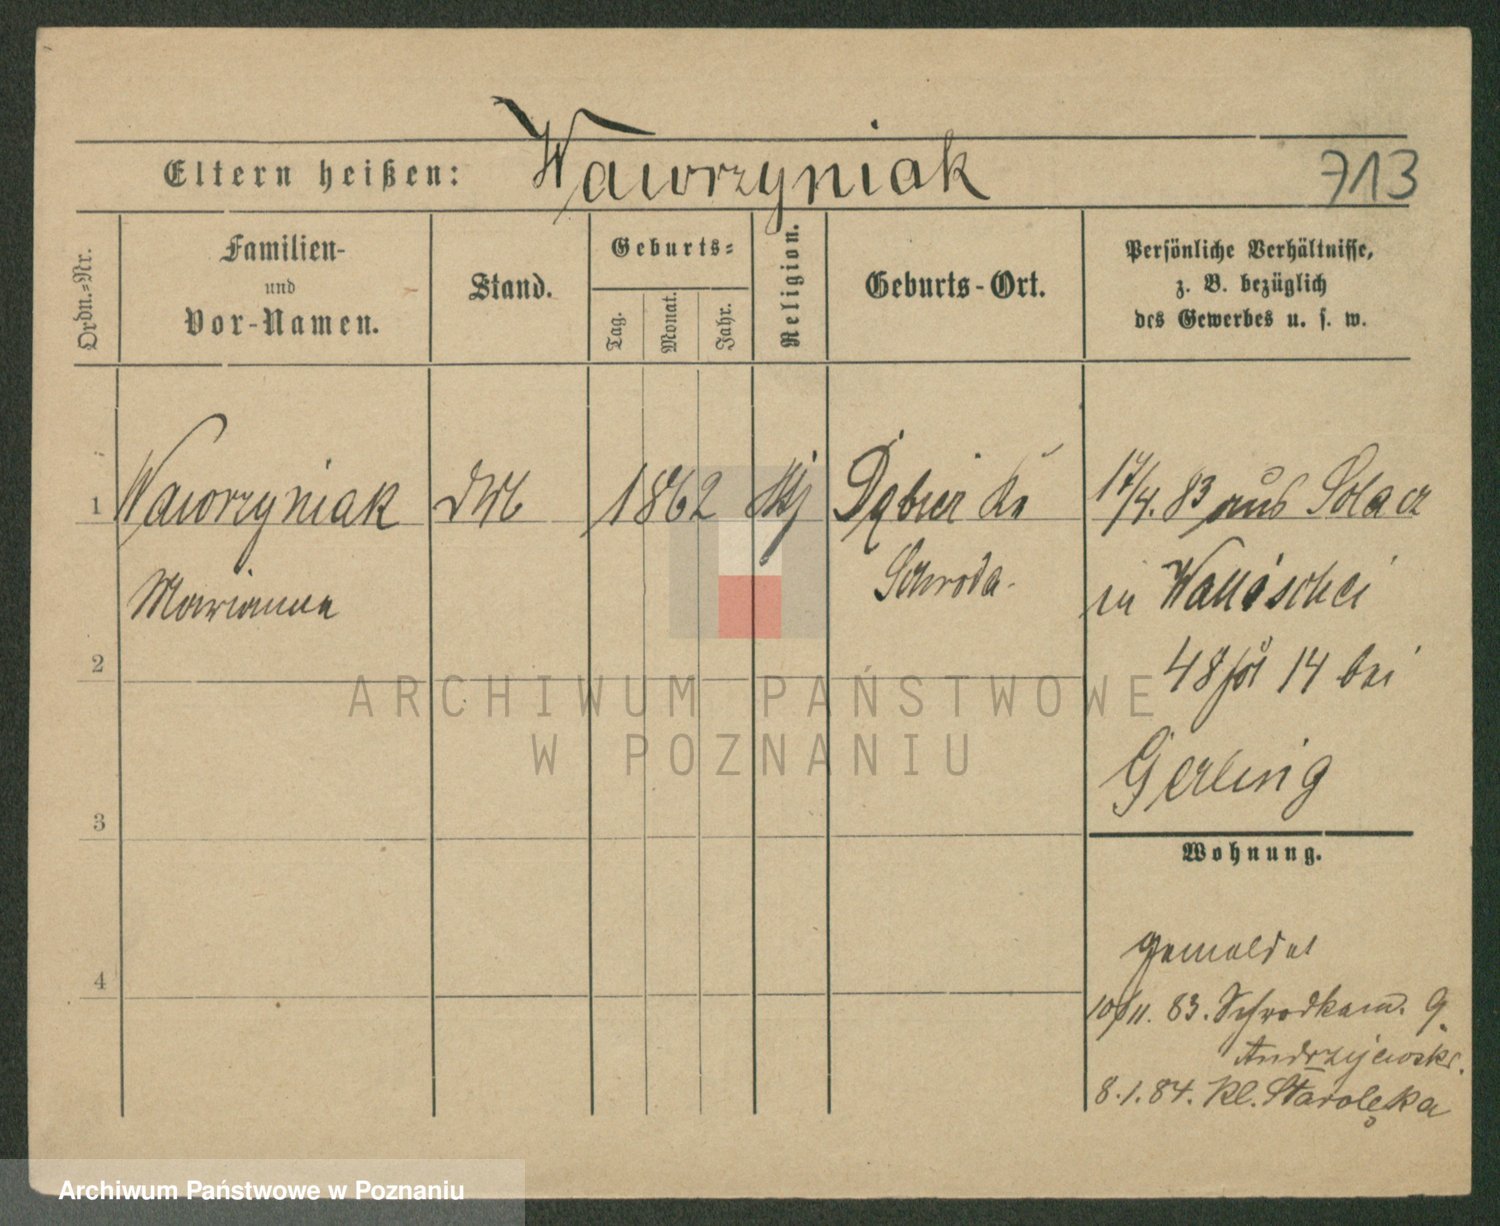 Eltern heißen: Wawrzyniak
713
Ordn.=Nr.
Familien-
und
Vor-Namen.
Stand.
Geburts=
Tag.
Monat.
Jahr.
Religion.
Geburts-Ort.
Persönliche Verhältnisse,
z. B. bezüglich
des Gewerbes u. s. w.
1 Wawrzyniak 1862
Marianna
Schroda
17/4. 83 aus Solacz
in Wallischei
48 14 bei
Gerling
2
3
4
Wohnung.
gemeldet
10/11. 83. Schrodkam. 9
Andrzejewski.
8.1.84. Kl. Starolęka
ARCHIWUM PAŃSTWOWE
W POZNANIU
Archiwum Państwowe w Poznaniu